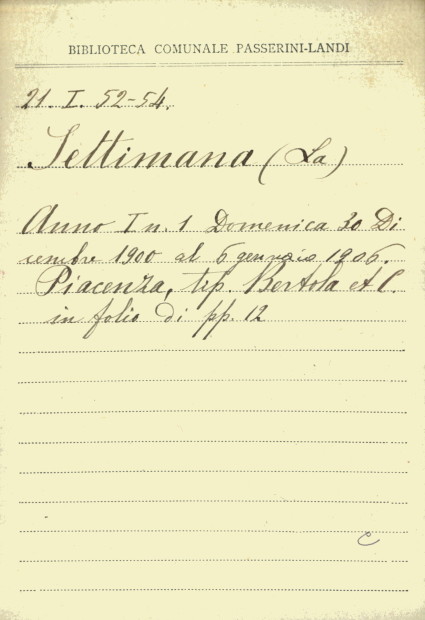 BIBLIOTECA COMUNALE PASSERINI-LANDI
21. I. 52-54.
Settimana (La)
Anno I n. 1 Domenica 30 Di
cembre 1900 al 6 gennaio 1906.
Piacenza, tip. Bertola et C.
in folio di pp. 12
C